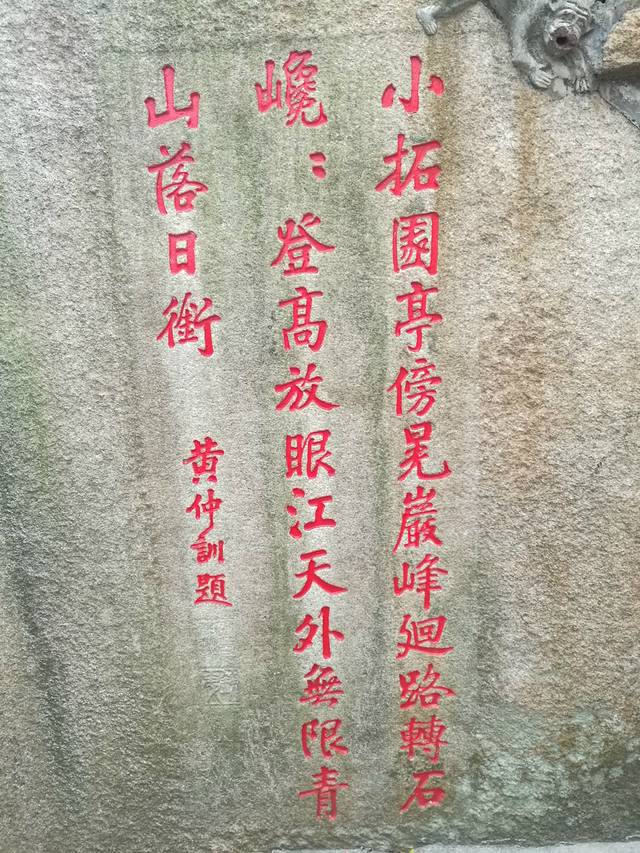 小拓園亭傍晃巖峰廻路轉石
巉〻登髙放眼江天外無限青
山落日銜
黄仲訓題